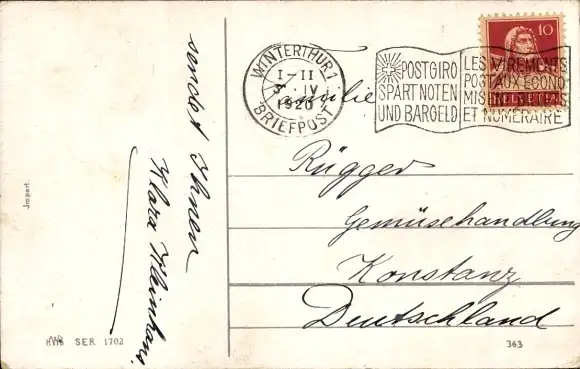 sendet Ihnen
Klara Kleinhans.
Import.
SER 1702
WINTERTHUR 1
I-II
3. IV
1920
BRIEFPOST
POSTGIRO
SPART NOTEN
UND BARGELD
LES VIREMENTS
POSTAUX ECONO
MIS
ET NUMERAIRE
10
HELVETIA
Familie
Rügger
Gemüsehandlung
Konstanz
Deutschland
363